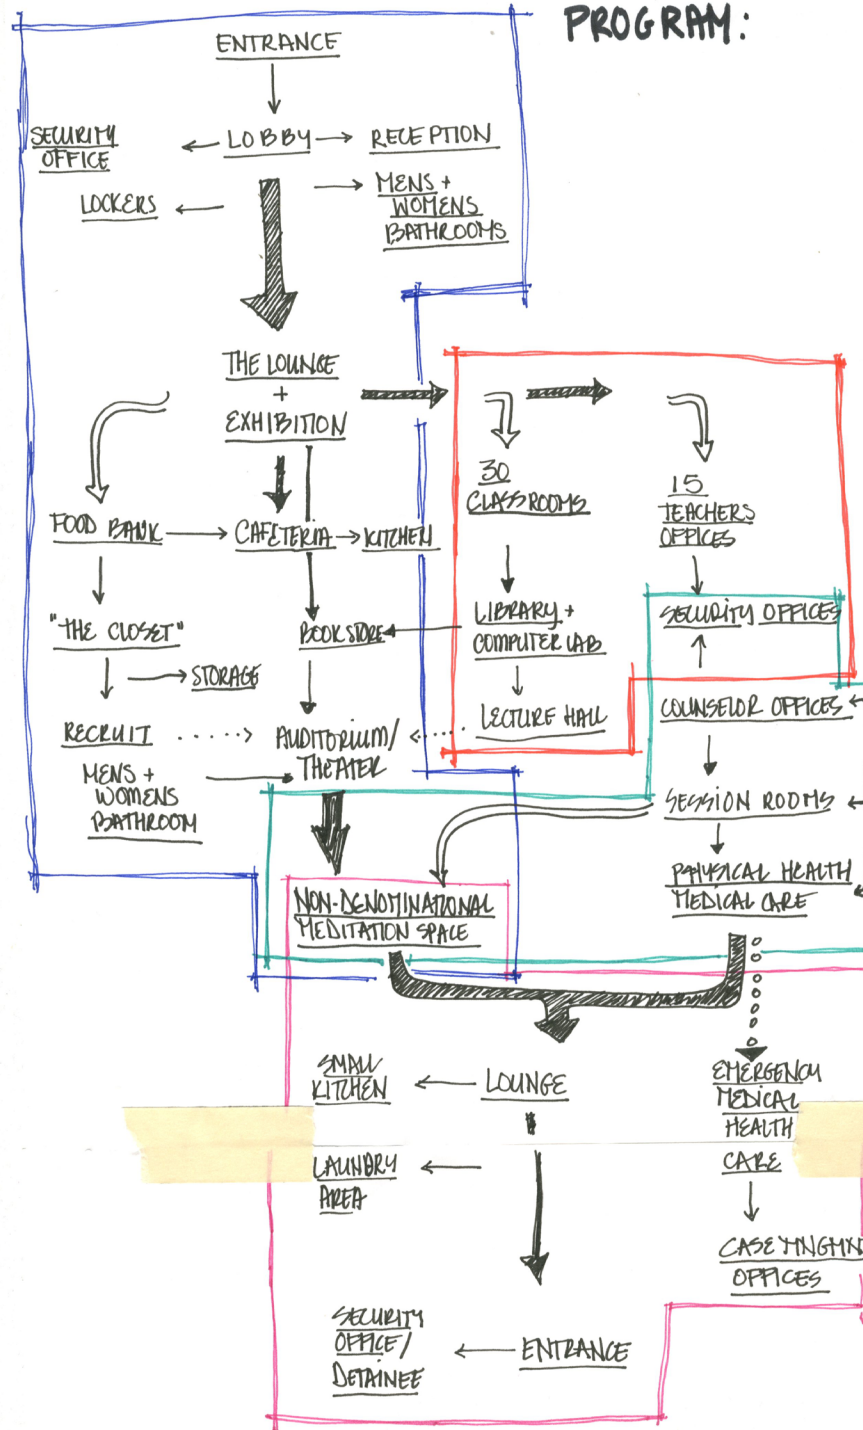 PROGRAM:
ENTRANCE
SECURITY
OFFICE
LOBBY
RECEPTION
LOCKERS
MENS +
WOMENS
BATHROOMS
THE LOUNGE
+
EXHIBITION
FOOD BANK
CAFETERIA
KITCHEN
"THE CLOSET"
STORAGE
BOOKSTORE
RECRUIT
MENS +
WOMENS
BATHROOM
AUDITORIUM/
THEATER
30
CLASSROOMS
15
TEACHERS
OFFICES
LIBRARY +
COMPUTER LAB
LECTURE HALL
SECURITY OFFICES
COUNSELOR OFFICES
SESSION ROOMS
PHYSICAL HEALTH
MEDICAL CARE
NON-DENOMINATIONAL
MEDITATION SPACE
SMALL
KITCHEN
LOUNGE
LAUNDRY
AREA
EMERGENCY
MEDICAL
HEALTH
CARE
CASE MNGMN
OFFICES
SECURITY
OFFICE/
DETAINEE
ENTRANCE